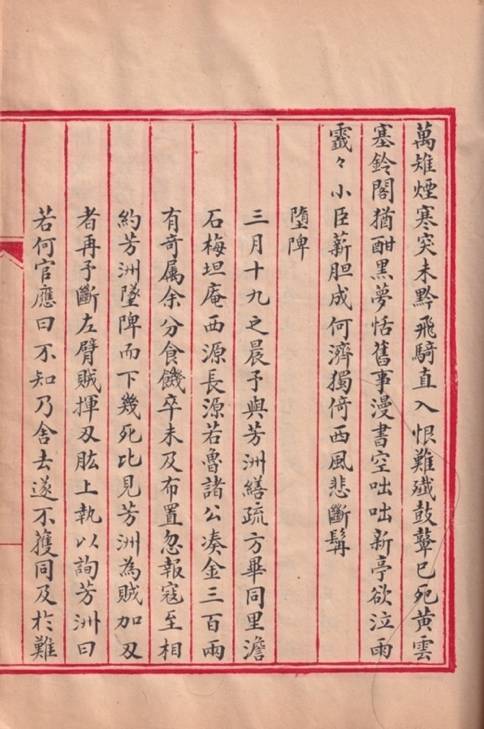 萬雉煙寒突未黔飛騎直入恨難殱鼓聲已死黄雲
塞鈴閣猶酣黒夢恬舊事漫書空咄咄新亭欲泣雨
霑々小臣薪胆成何濟獨倚西風悲斷髯
墮陴
三月十九之晨予與芳洲繕疏方畢同里澹
石梅坦庵西源長源若魯諸公凑金三百兩
有竒属余分食餓卒未及布置忽報寇至相
約芳洲墜陴而下幾死比見芳洲為賊加刃
者再予斷左臂賊揮刃肱上執以詢芳洲曰
若何官應曰不知乃舍去遂不獲同及於難